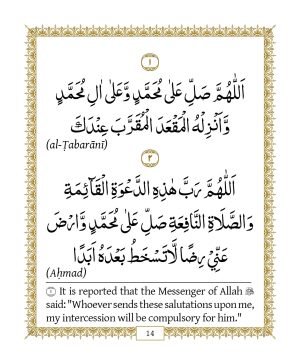 ١
اَللّٰهُمَّ صَلِّ عَلٰى مُحَمَّدٍ وَّعَلٰى اٰلِ مُحَمَّدٍ
وَّاَنْزِلْهُ الْمَقْعَدَ الْمُقَرَّبَ عِنْدَكَ
(al-Ṭabarānī)
٢
اَللّٰهُمَّ رَبَّ هٰذِهِ الدَّعْوَةِ الْقَآئِمَةِ
وَالصَّلَاةِ النَّافِعَةِ صَلِّ عَلٰى مُحَمَّدٍ وَّارْضَ
عَنِّيْ رِضًا لَّا تَسْخَطُ بَعْدَهُ اَبَدًا
(Aḥmad)
١ It is reported that the Messenger of Allah ﷺ
said: "Whoever sends these salutations upon me,
my intercession will be compulsory for him."
14